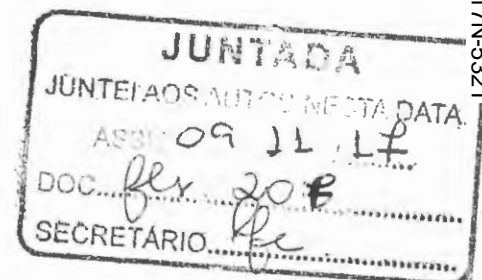 JUNTADA
JUNTEI AOS AUTOS NESTA DATA
ASS 09 11 17
DOC. fls 20
SECRETÁRIO
N-5321